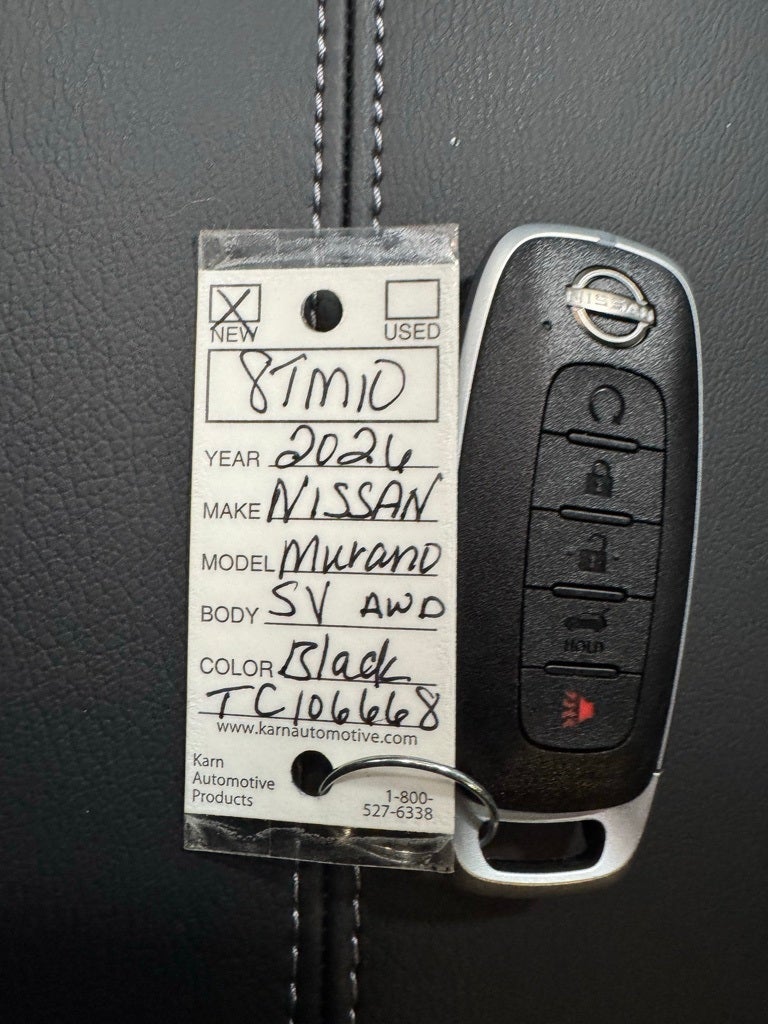 NEW USED
8TM10
YEAR 2026
MAKE NISSAN
MODEL Murano
BODY SV AWD
COLOR Black
TC106668
www.karnautomotive.com
Karn
Automotive
Products
1-800-
527-6338
NISSAN
HOLD